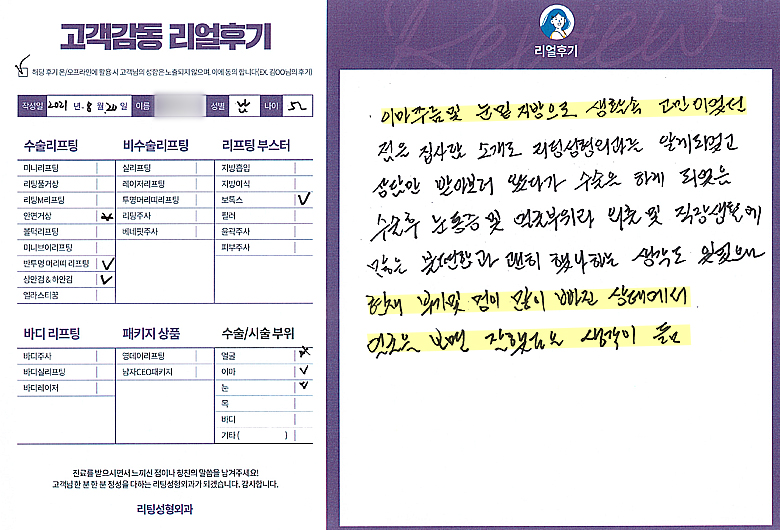 고객감동 리얼후기
해당 후기 온/오프라인에 활용 시 고객님의 성함은 노출되지 않으며, 이에 동의 합니다(EX. 김OO님의 후기)
작성일 2021 년 8 월 20 일 이름 성별 남 나이 52
수술리프팅 비수술리프팅 리프팅 부스터
미니리프팅 실리프팅 지방흡입
리팅풀거상 레이저리프팅 지방이식
리팅M리프팅 투명머리띠리프팅 보톡스
안면거상 리팅주사 필러
볼턱리프팅 베네핏주사 윤곽주사
이니브이리프팅 피부주사
반투명 머리띠 리프팅
상안검 & 하안검
엘라스티꿈
바디 리프팅 패키지 상품 수술/시술 부위
바디주사 영데이리프팅 얼굴
바디실리프팅 남자CEO패키지 이마
바디레이저 눈
목
바디
기타 ( )
진료를 받으시면서 느끼신 점이나 칭찬의 말씀을 남겨주세요!
고객님 한 분 한 분 정성을 다하는 리팅성형외과가 되겠습니다. 감사합니다.
리팅성형외과
Review
리얼후기
이마주름 및 눈밑 지방으로 생활속 고민이었던
점을 집사람 소개로 리팅성형외과를 알게되었고
상담만 받아보러 왔다가 수술을 하게 되었음
수술후 눈통증 및 얼굴부위라 외출 및 직장생활에
많은 불편함과 괜히 했나하는 생각도 있었으나
현재 부기 및 멍이 많이 빠진 상태에서
얼굴을 보면 잘했다는 생각이 듬